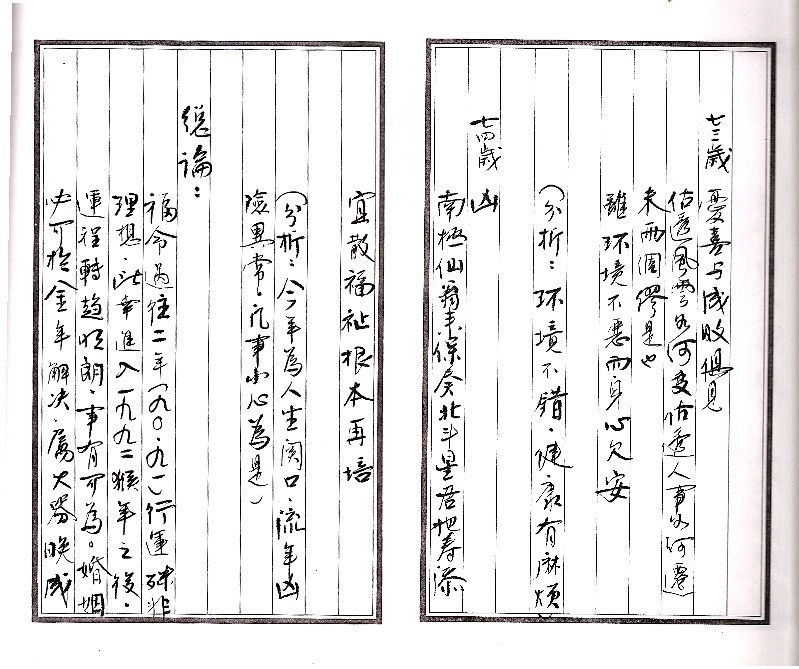 七三歲 憂喜与成敗偶見
估透風雲如何变估透人事如何遷
来兩個繆是也
雖环境不悪而身心欠安
(分折：环境不錯．健康有麻煩)
七四歲 凶
南極仙翁来保奏北斗星君把寿添
宜散福祉根本再培
(分析：今年為人生関口．流年凶
險異常．凡事小心為是)
總論：
福命過往二年(九〇．九一)行運殊非
理想．此幸進入一九九二猴年之後．
運程轉趋明朗．事有可為。婚姻
必可於金年解决．屬大器晚成